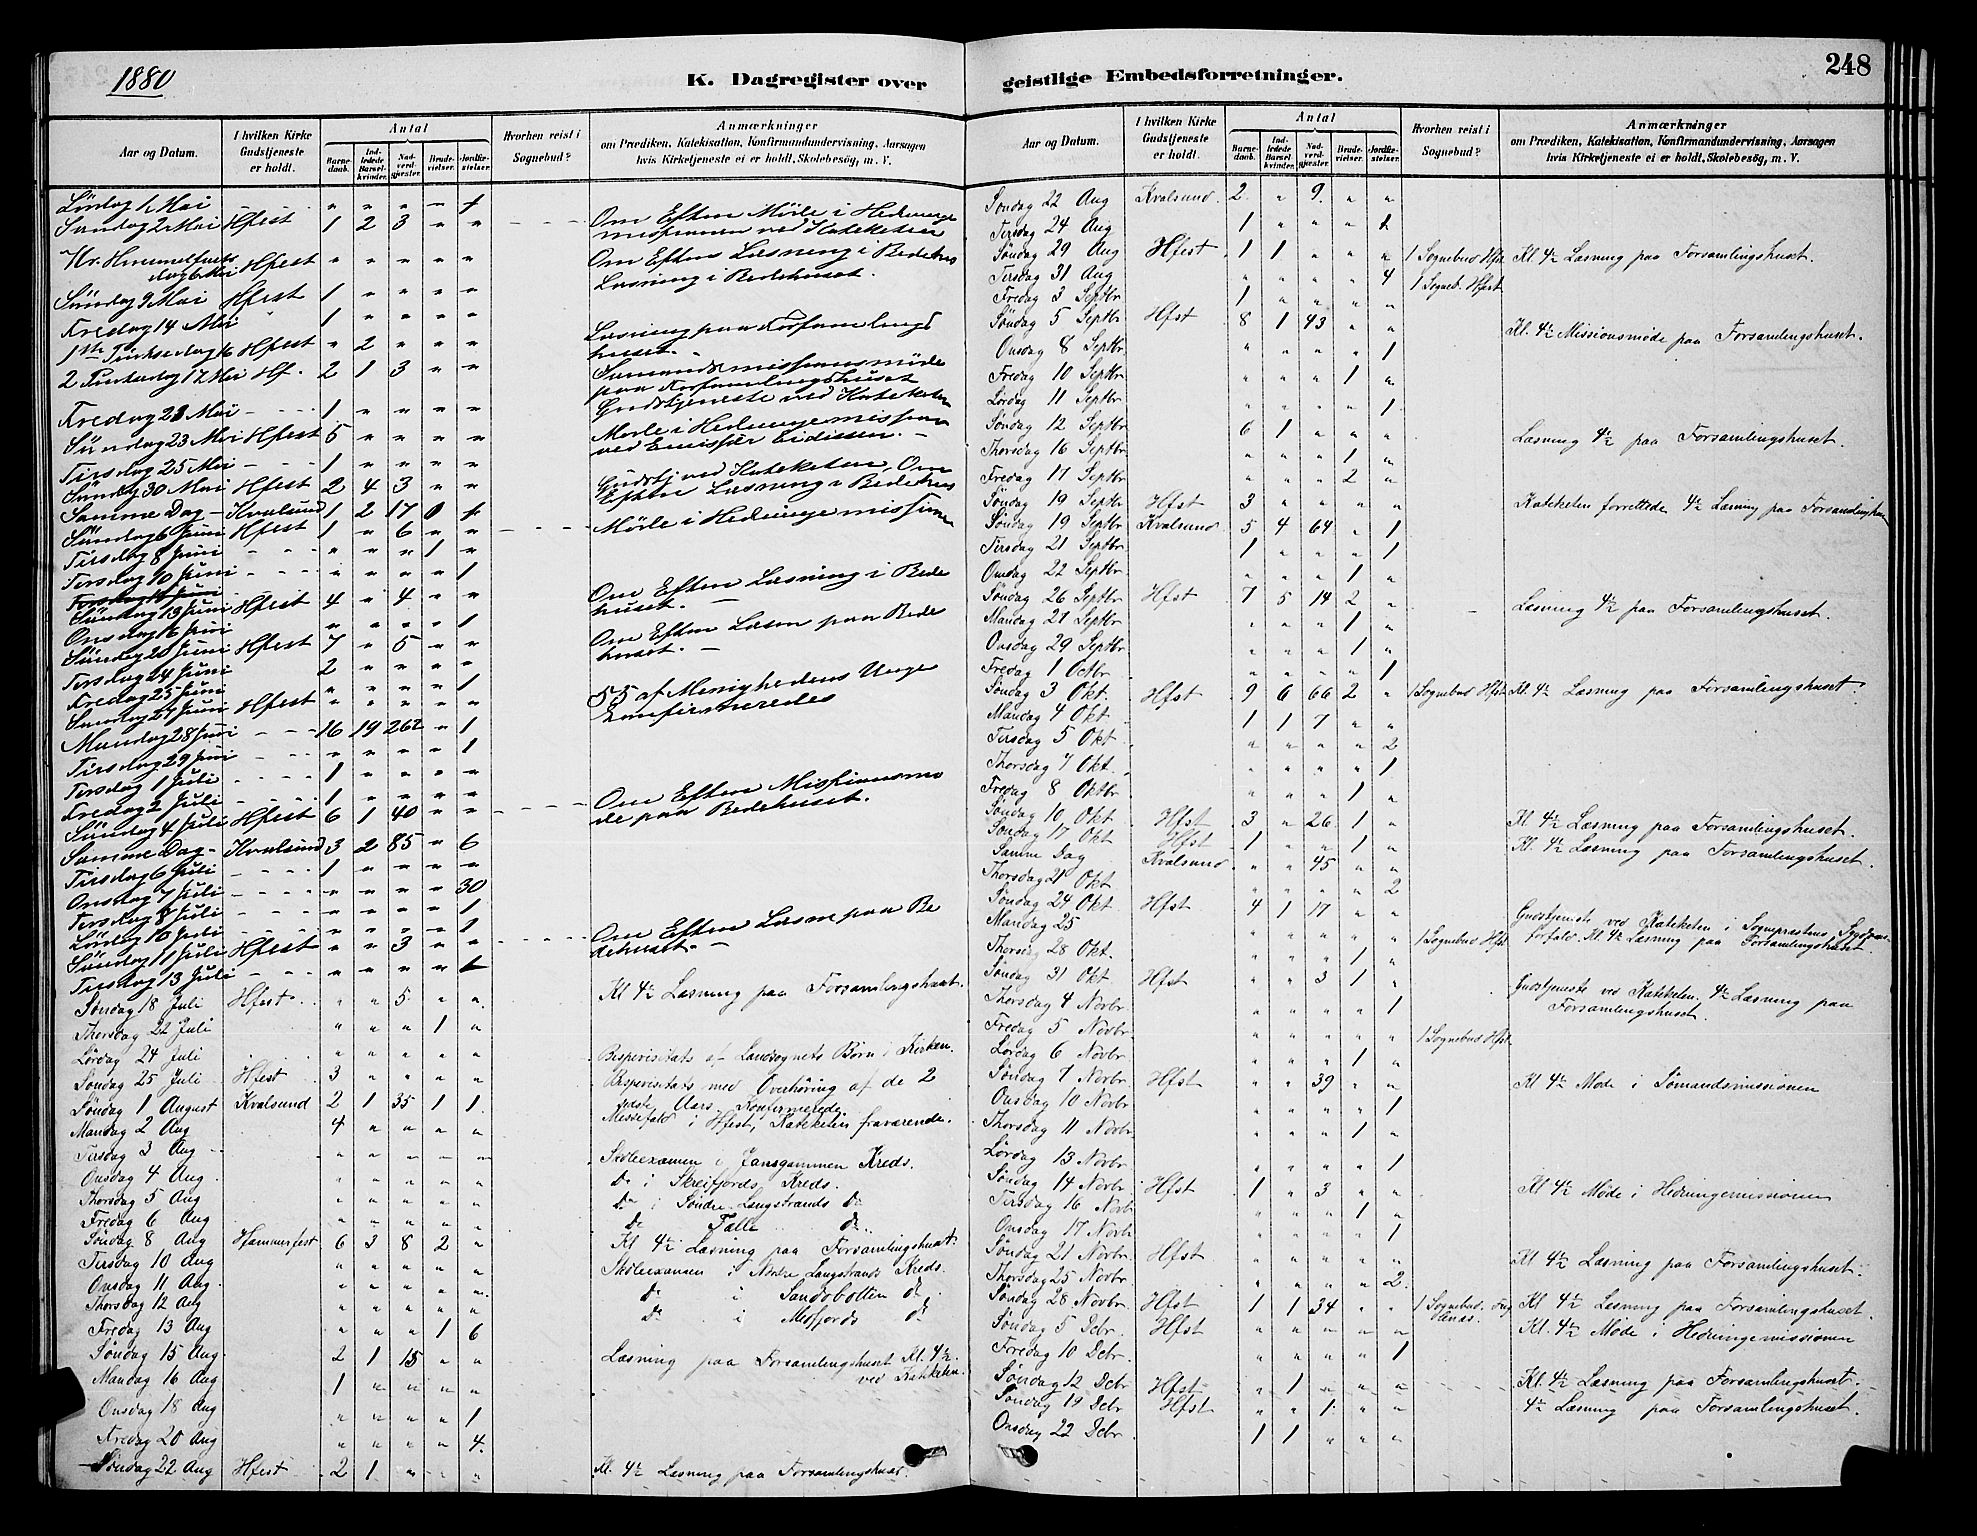 1880
K. Dagregister over
Aar og Datum. I hvilken Kirke Gudstjeneste er holdt. Antal Barnedaab. Indledede Barselkvinder. Nadverdgjester. Brudevielser. Jordfæstelser. Hvorhen reist i Sognebud? Anmærkninger om Prædiken, Katekisation, Konfirmandundervisning, Aarsagen hvis Kirketjeneste ei er holdt, Skolebesög, m. V.
Lördag 1 Mai - - " " " "
Søndag 2 Mai Hfest 1 2 3 " " Om Eften Möde i Hedninge
missionen ved Kateketen
Kr. Himmelfarts
dag 6 Mai Hfest " " " " " Om Eften Læsning i Bedehus
Søndag 9 Mai Hfest 1 " " " " Læsning i Bedehuset.
Fredag 14 Mai 1 " " " "
1ste Pintsedag 16 Hfest " 2 " " " Læsning paa Forsamlings
huset.
2 Pintsedag 17 Mai Hf. 2 1 3 " " Sømandsmissionsmöde
paa Forsamlingshuset
Fredag 21 Mai - - - 1 " " " " Gudstjeneste ved Kateketen
Søndag 23 Mai Hfest 5 " " " " Möde i Hedningemission
ved Emissær Eidissen. -
Tirsdag 25 Mai - - 1 " " " "
Søndag 30 Mai Hfest 2 4 3 " " Gudstj ved Kateketen. Om
Eften Læsning i Bedehus
Samme Dag - Kvalsund 1 2 17 0
Søndag 6 Juni Hfest 1 " 6 " " Möde i Hedningemission
Tirsdag 8 Juni - - - " " " 1 "
Torsdag 10 Juni - - - " " " " 1
Søndag 13 Juni Hfest 4 " 4 " " Om Eften Læsning i Bede
huset. -
Onsdag 16 Juni " " " " 1
Søndag 20 Juni Hfest 7 " 5 " " Om Eften Læsn paa Bede
huset. -
Torsdag 24 Juni 2 " " " "
Fredag 25 Juni " " " " 1
Søndag 27 Juni Hfest " " " " " 55 af Menighedens Unge
Konfirmeredes
Mandag 28 Juni - - - 16 19 262 " 1
Tirsdag 29 Juni - - - " " " " 1
Torsdag 1 Juli - - - 1 " " " "
Fredag 2 Juli - - - 1 " " " "
Søndag 4 Juli Hfest 6 1 40 " " Om Eften Missionsmö
de paa Bedehuset.
Samme Dag - Kvalsund 3 2 85 " 6
Tirsdag 6 Juli - - - 1 " " " "
Onsdag 7 Juli - - - " " " " 30
Torsdag 8 Juli - - - " " " " 1
Lördag 10 Juli " " " " 1
Søndag 11 Juli Hfest " " 3 " " Om Eften Læsn paa Be
dehuset. -
Tirsdag 13 Juli - - - " " " " 1
Søndag 18 Juli Hfest " " 5 " " Kl 4½ Læsning paa Forsamlingshuset.
Thorsdag 22 Juli " " " 1 "
Lørdag 24 Juli " " " " " Bispevisitats af Landsognets Børn i Kirken.
Søndag 25 Juli Hfest 3 " " " " Bispevisitats med Overhøring af de 2
sidste Aars Konfirmerede.
Søndag 1 August Kvalsund 2 1 35 1 1 Messefald i Hfest, Kateketen fraværende.
Mandag 2 Aug 4 " " " "
Tirsdag 3 Aug " " " " " Skoleexamen i Jansgammen Kreds.
Onsdag 4 Aug " " " " " do i Skreifjords Kreds.
Thorsdag 5 Aug " " " " " do i Søndre Langstrands do
Fredag 6 Aug " " " " " do Fålle do
Søndag 8 Aug Hammerfest 6 3 8 2 " Kl 4½ Læsning paa Forsamlingshuset.
Tirsdag 10 Aug " " " " " Skoleexamen i Nordre Langstrands Kreds.
Onsdag 11 Aug " " " " " do i Sandobotten do
Thorsdag 12 Aug " " " " " do i Mefjords do
Fredag 13 Aug " " " 1 6
Søndag 15 Aug 2 1 15 " " Læsning paa Forsamlingshuset Kl. 4½
ved Kateketen.
Mandag 16 Aug 1 " " " "
Onsdag 18 Aug " " " " 1
Fredag 20 Aug " " " " 4.
Søndag 22 Aug Hfest 2 1 " " " Kl. 4½ Læsning paa Forsamlingshuset.
geistlige Embedsforretninger. 248
Aar og Datum. I hvilken Kirke Gudstjeneste er holdt. Antal Barnedaab. Indledede Barselkvinder. Nadverdgjester. Brudevielser. Jordfæstelser. Hvorhen reist i Sognebud? Anmærkninger om Prædiken, Katekisation, Konfirmandundervisning, Aarsagen hvis Kirketjeneste ei er holdt, Skolebesög, m. V.
Søndag 22 Aug Kvalsund. 2 " 9 " "
Tirsdag 24 Aug 1 " " " 1
Søndag 29 Aug Hfest 1 1 " " " 1 Sognebud Hfst Kl. 4½ Læsning paa Forsamlingshuset.
Tirsdag 31 Aug " " " " 4 1 Sogneb. Hfest
Fredag 3 Septbr 1 " " " "
Søndag 5 Septbr Hfst 8 1 43 " " Kl. 4½ Missionsmøde paa Forsamlingshuset.
Onsdag 8 Septbr " " " " 1
Fredag 10 Septbr " " " 1 "
Lørdag 11 Septbr " " " " 1
Søndag 12 Septbr 6 1 " " " Læsning 4½ paa Forsamlingshuset.
Thorsdag 16 Septbr " " " 1 "
Fredag 17 Septbr " " " 2 "
Søndag 19 Septbr Hfst 3 " " " " Kateketen forrettede 4½ Læsning paa Forsamlingshus
Søndag 19 Septbr Kvalsund 5 4 64 " 1
Tirsdag 21 Septbr 1 " " " 1
Onsdag 22 Septbr " " " 1 "
Søndag 26 Septbr Hfst 7 5 14 2 " Læsning 4½ paa Forsamlingshuset.
Mandag 27 Septbr " " " 1 "
Onsdag 29 Septbr " " " 1 "
Fredag 1 Octbr " " " " 1
Søndag 3 Okt. Hfst 9 6 66 2 " 1 Sognebud Hfst Kl. 4½ Læsning paa Forsamlingshuset.
Mandag 4 Okt 1 1 7 " "
Tirsdag 5 Okt " " " " 2
Thorsdag 7 Okt. " " " " 1
Fredag 8 Oktbr " " " 1 "
Søndag 10 Okt Hfst 3 " 26 1 " Kl 4½ Læsning paa Forsamlingshuset.
Søndag 17 Okt Hfst 1 " " 1 " Kl. 4½ Læsning paa Forsamlingshuset.
Samme Dag Kvalsund " " 45 " "
Thorsdag 21 Okt " " " " 2
Søndag 24 Okt Hfst 4 1 17 " " Gudstjeneste ved Kateketen i Sogneprestens Sygdoms-
Mandag 25 " " " " " 1 Sognebud Hfst forfald. Kl. 4½ Læsning paa Forsamlingshuset.
Thorsdag 28 Okt. " " " 1 "
Søndag 31 Okt Hfst " " 3 1 " Gudstjeneste ved Kateketen. 4½ Læsning paa
Forsamlingshuset.
Thorsdag 4 Novbr " " " " 1
Fredag 5 Novbr " " " " " 1 Sognebud Hfst
Lørdag 6 Novbr " " " 1 "
Søndag 7 Novbr Hfst " " 39 " " Kl 4½ Møde i Sømandsmissionen
Onsdag 10 Novbr " " " " 1
Thorsdag 11 Novbr " " " 1 "
Lørdag 13 Novbr " " " " 1
Søndag 14 Novbr Hfst 1 " 3 " " Kl 4½ Møde i Hedningemissionen
Tirsdag 16 Novbr " " " 1 "
Onsdag 17 Novbr " " " " 1
Søndag 21 Novbr Hfst " " " " " Kl 4½ Læsning paa Forsamlingshuset.
Thorsdag 25 Novbr " " " " 2
Søndag 28 Novbr Hfst 1 1 34 " " 1 Sognebud. Kl 4½ Læsning paa Forsamlingshuset.
Søndag 5 Debr. Hfst " " " " " Kl. 4½ Møde i Hedningemissionen
Fredag 10 Debr. " " " " 1
Søndag 12 Debr Hfst " 1 " " " Kl. 4½ Læsning paa Forsamlingshuset.
Søndag 19 Debr Hfst " " 1 " " 4½ Læsning paa Forsamlingshuset.
Onsdag 22 Debr. 1 1 " " "